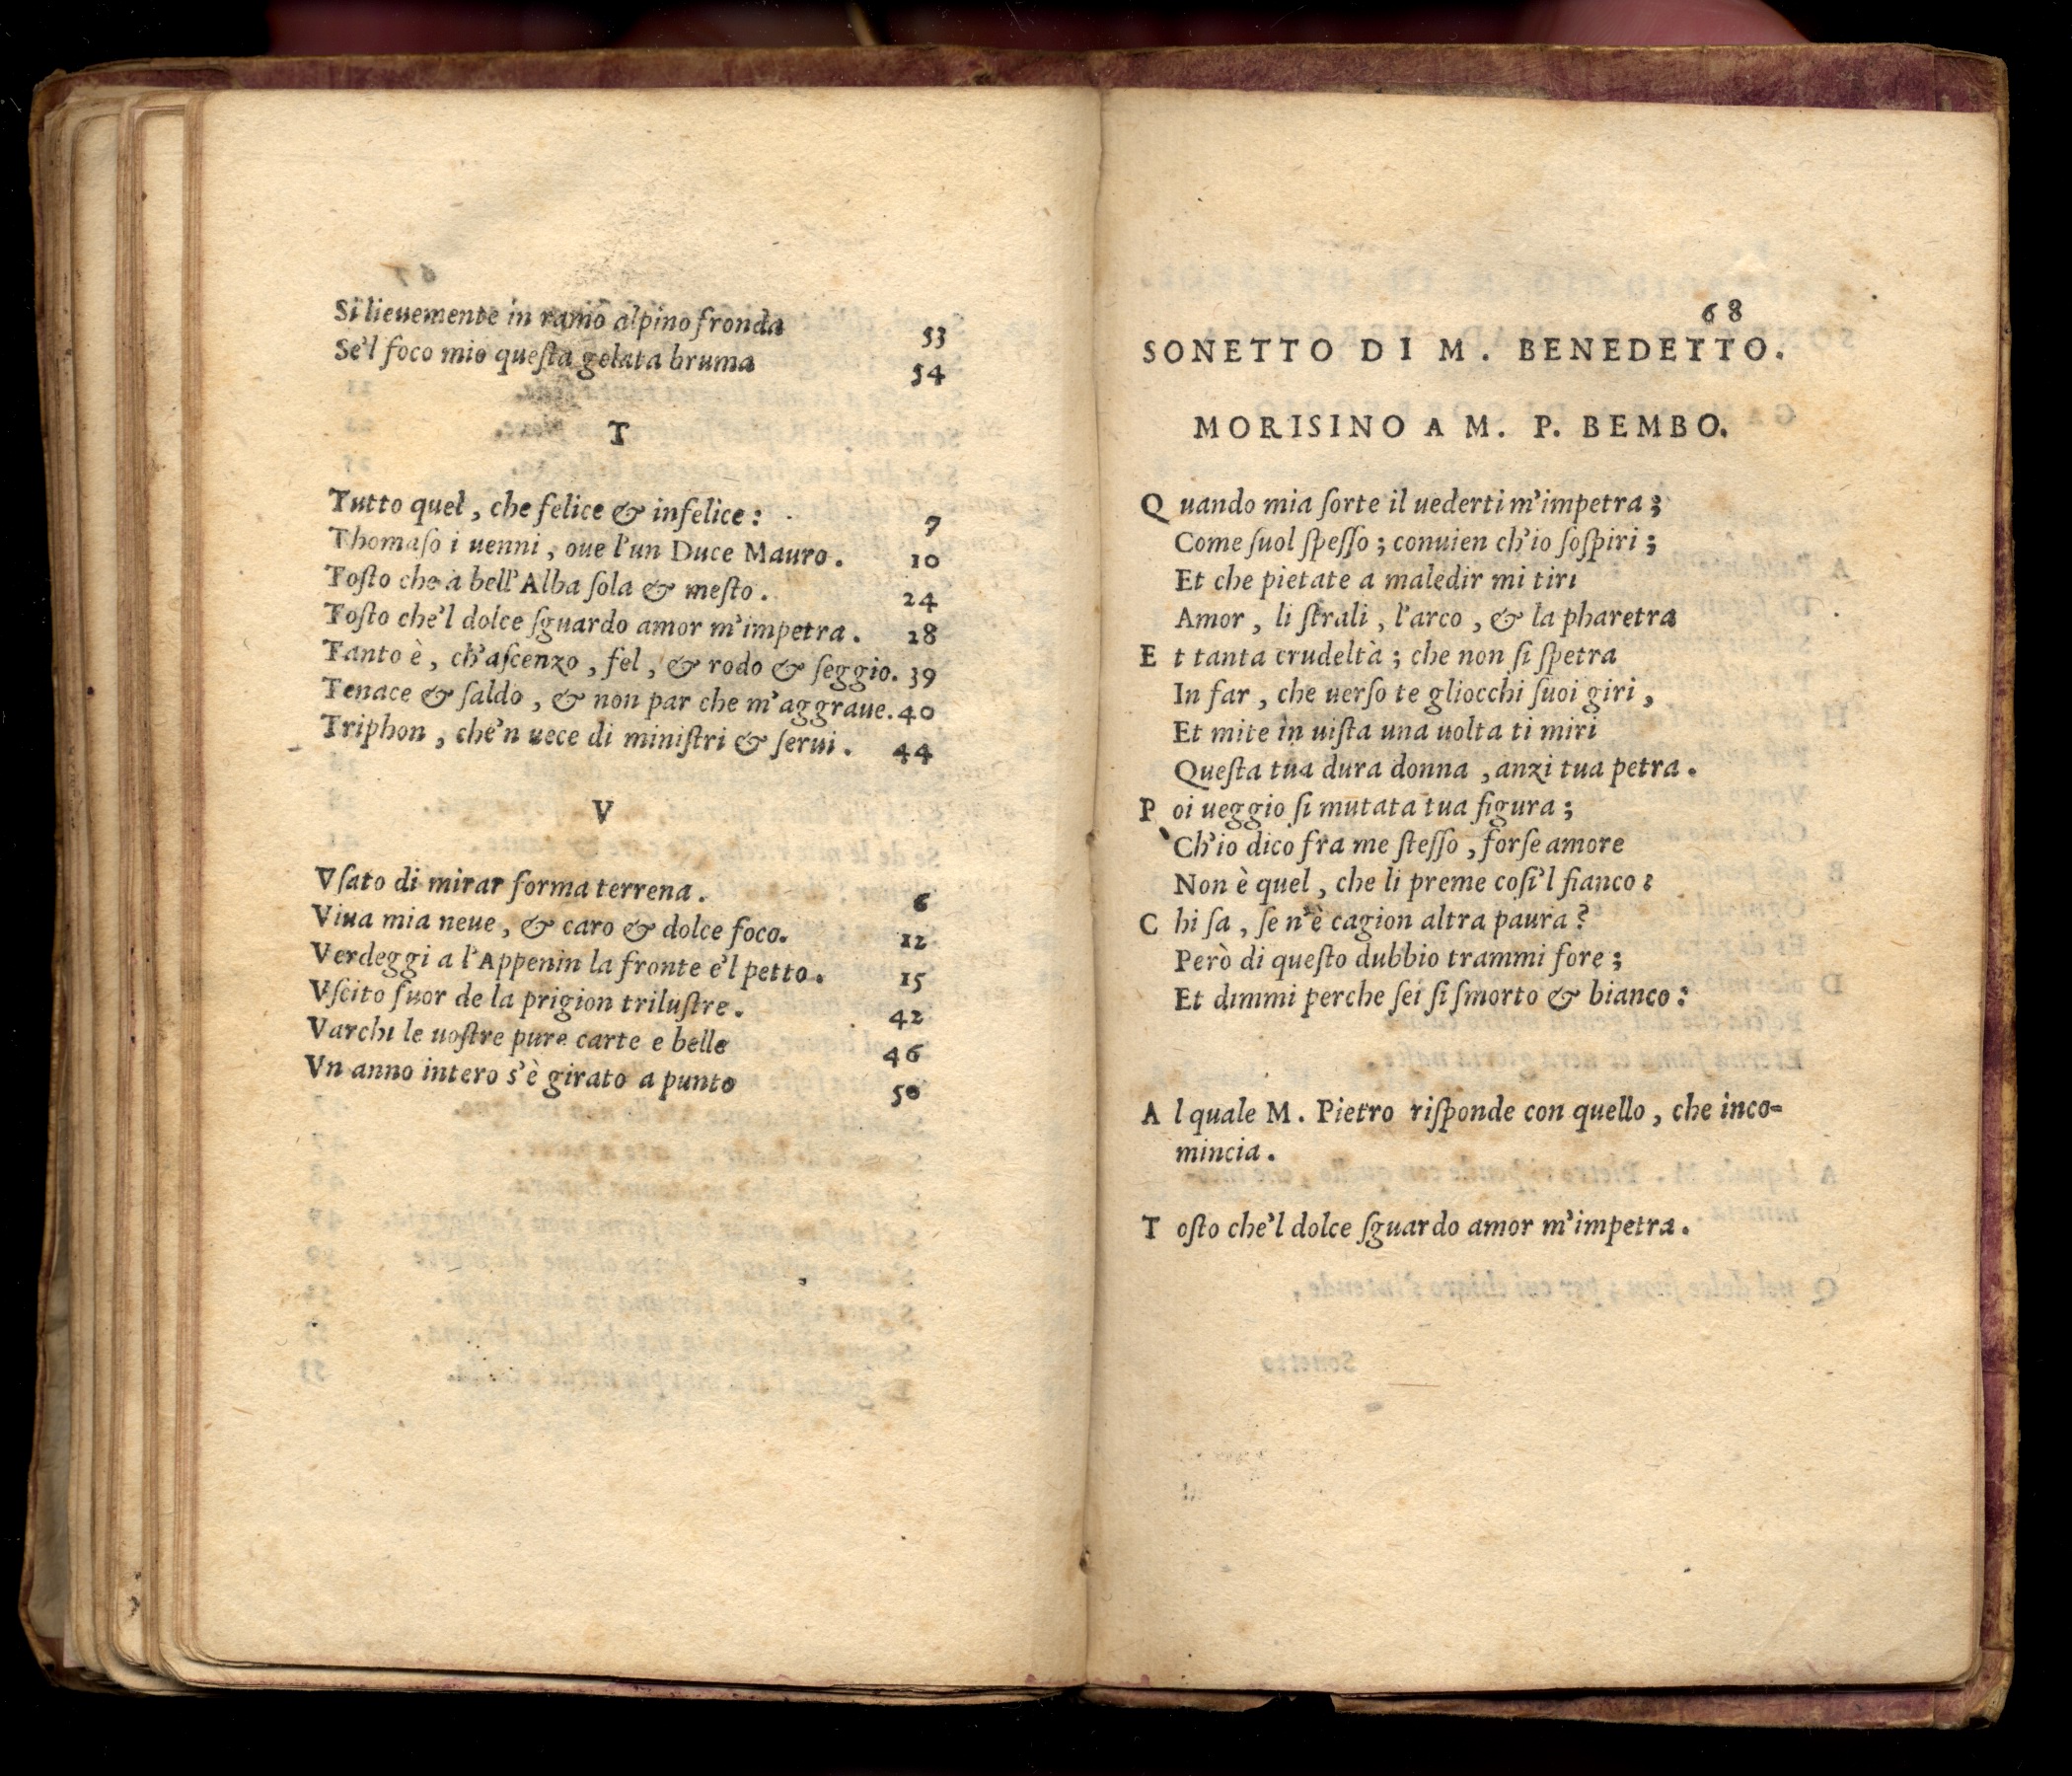 Si lieuemente in ramo alpino fronda 53
Se'l foco mio queſta gelata bruma 54
T
Tutto quel, che felice & infelice: 7
Thomaſo i uenni, oue l'un Duce Mauro. 10
Toſto che a bell'Alba ſola & meſto. 24
Toſto che'l dolce ſguardo amor m'impetra. 28
Tanto è, ch'aſcenzo, fel, & rodo & ſeggio. 39
Tenace & ſaldo, & non par che m'aggraue. 40
Triphon, che'n uece di miniſtri & ſerui. 44
V
Vſato di mirar forma terrena. 6
Viua mia neue, & caro & dolce foco. 12
Verdeggi a l'Appenin la fronte e'l petto. 15
Vſcito fuor de la prigion triluſtre. 42
Varchi le uoſtre pure carte e belle 46
Vn anno intero s'è girato a punto 50
68
SONETTO DI M. BENEDETTO.
MORISINO A M. P. BEMBO.
Quando mia ſorte il uederti m'impetra;
Come ſuol ſpeſſo; conuien ch'io ſoſpiri;
Et che pietate a maledir mi tiri
Amor, li ſtrali, l'arco, & la pharetra
Et tanta crudeltà; che non ſi ſpetra
In far, che uerſo te gliocchi ſuoi giri,
Et mite in uiſta una uolta ti miri
Queſta tua dura donna, anzi tua petra.
Poi ueggio ſi mutata tua figura;
Ch'io dico fra me ſteſſo, forſe amore
Non è quel, che li preme coſi'l fianco?
Chi ſa, ſe n'è cagion altra paura?
Però di queſto dubbio trammi fore;
Et dimmi perche ſei ſi ſmorto & bianco:
Al quale M. Pietro riſponde con quello, che inco-
mincia.
Toſto che'l dolce ſguardo amor m'impetra.